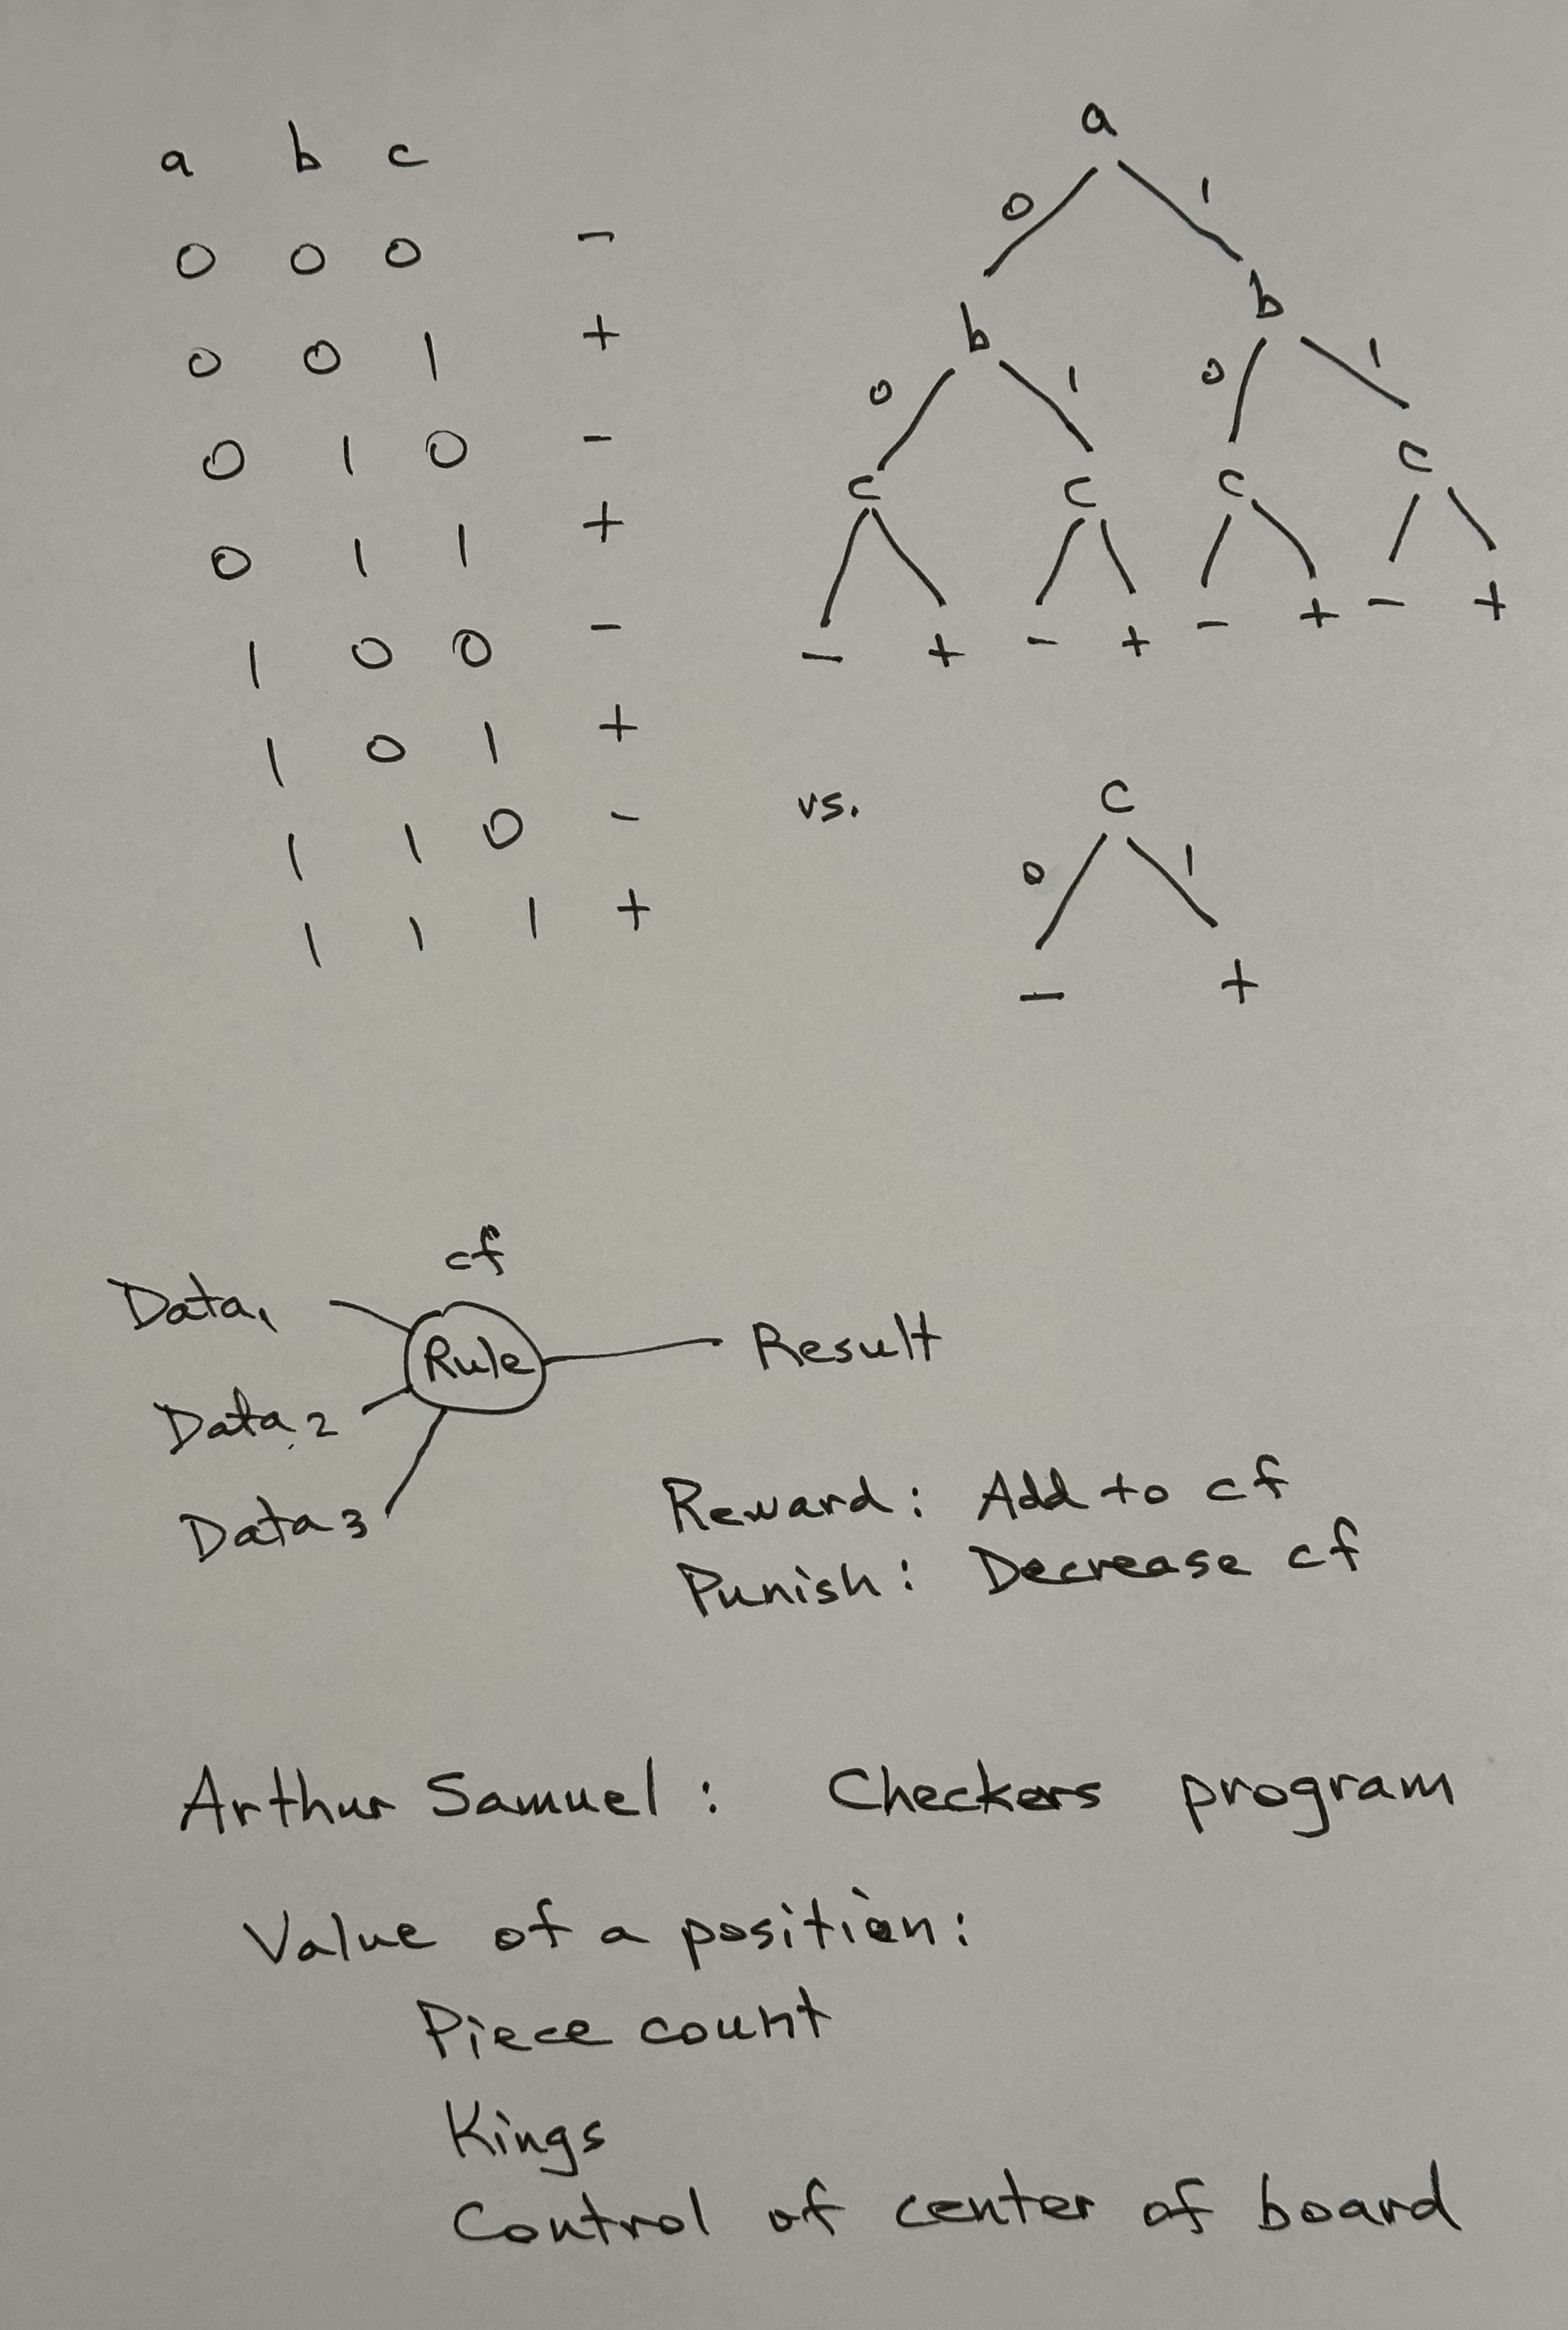 a b c
0 0 0 -
0 0 1 +
0 1 0 -
0 1 1 +
1 0 0 -
1 0 1 +
1 1 0 -
1 1 1 +
a
0 1
b b
0 1 0 1
c c c c
- + - + - + - +
vs.
c
0 1
- +
cf
Data1
Rule
Result
Data2
Data3
Reward: Add to cf
Punish: Decrease cf
Arthur Samuel: Checkers program
Value of a position:
Piece count
Kings
Control of center of board